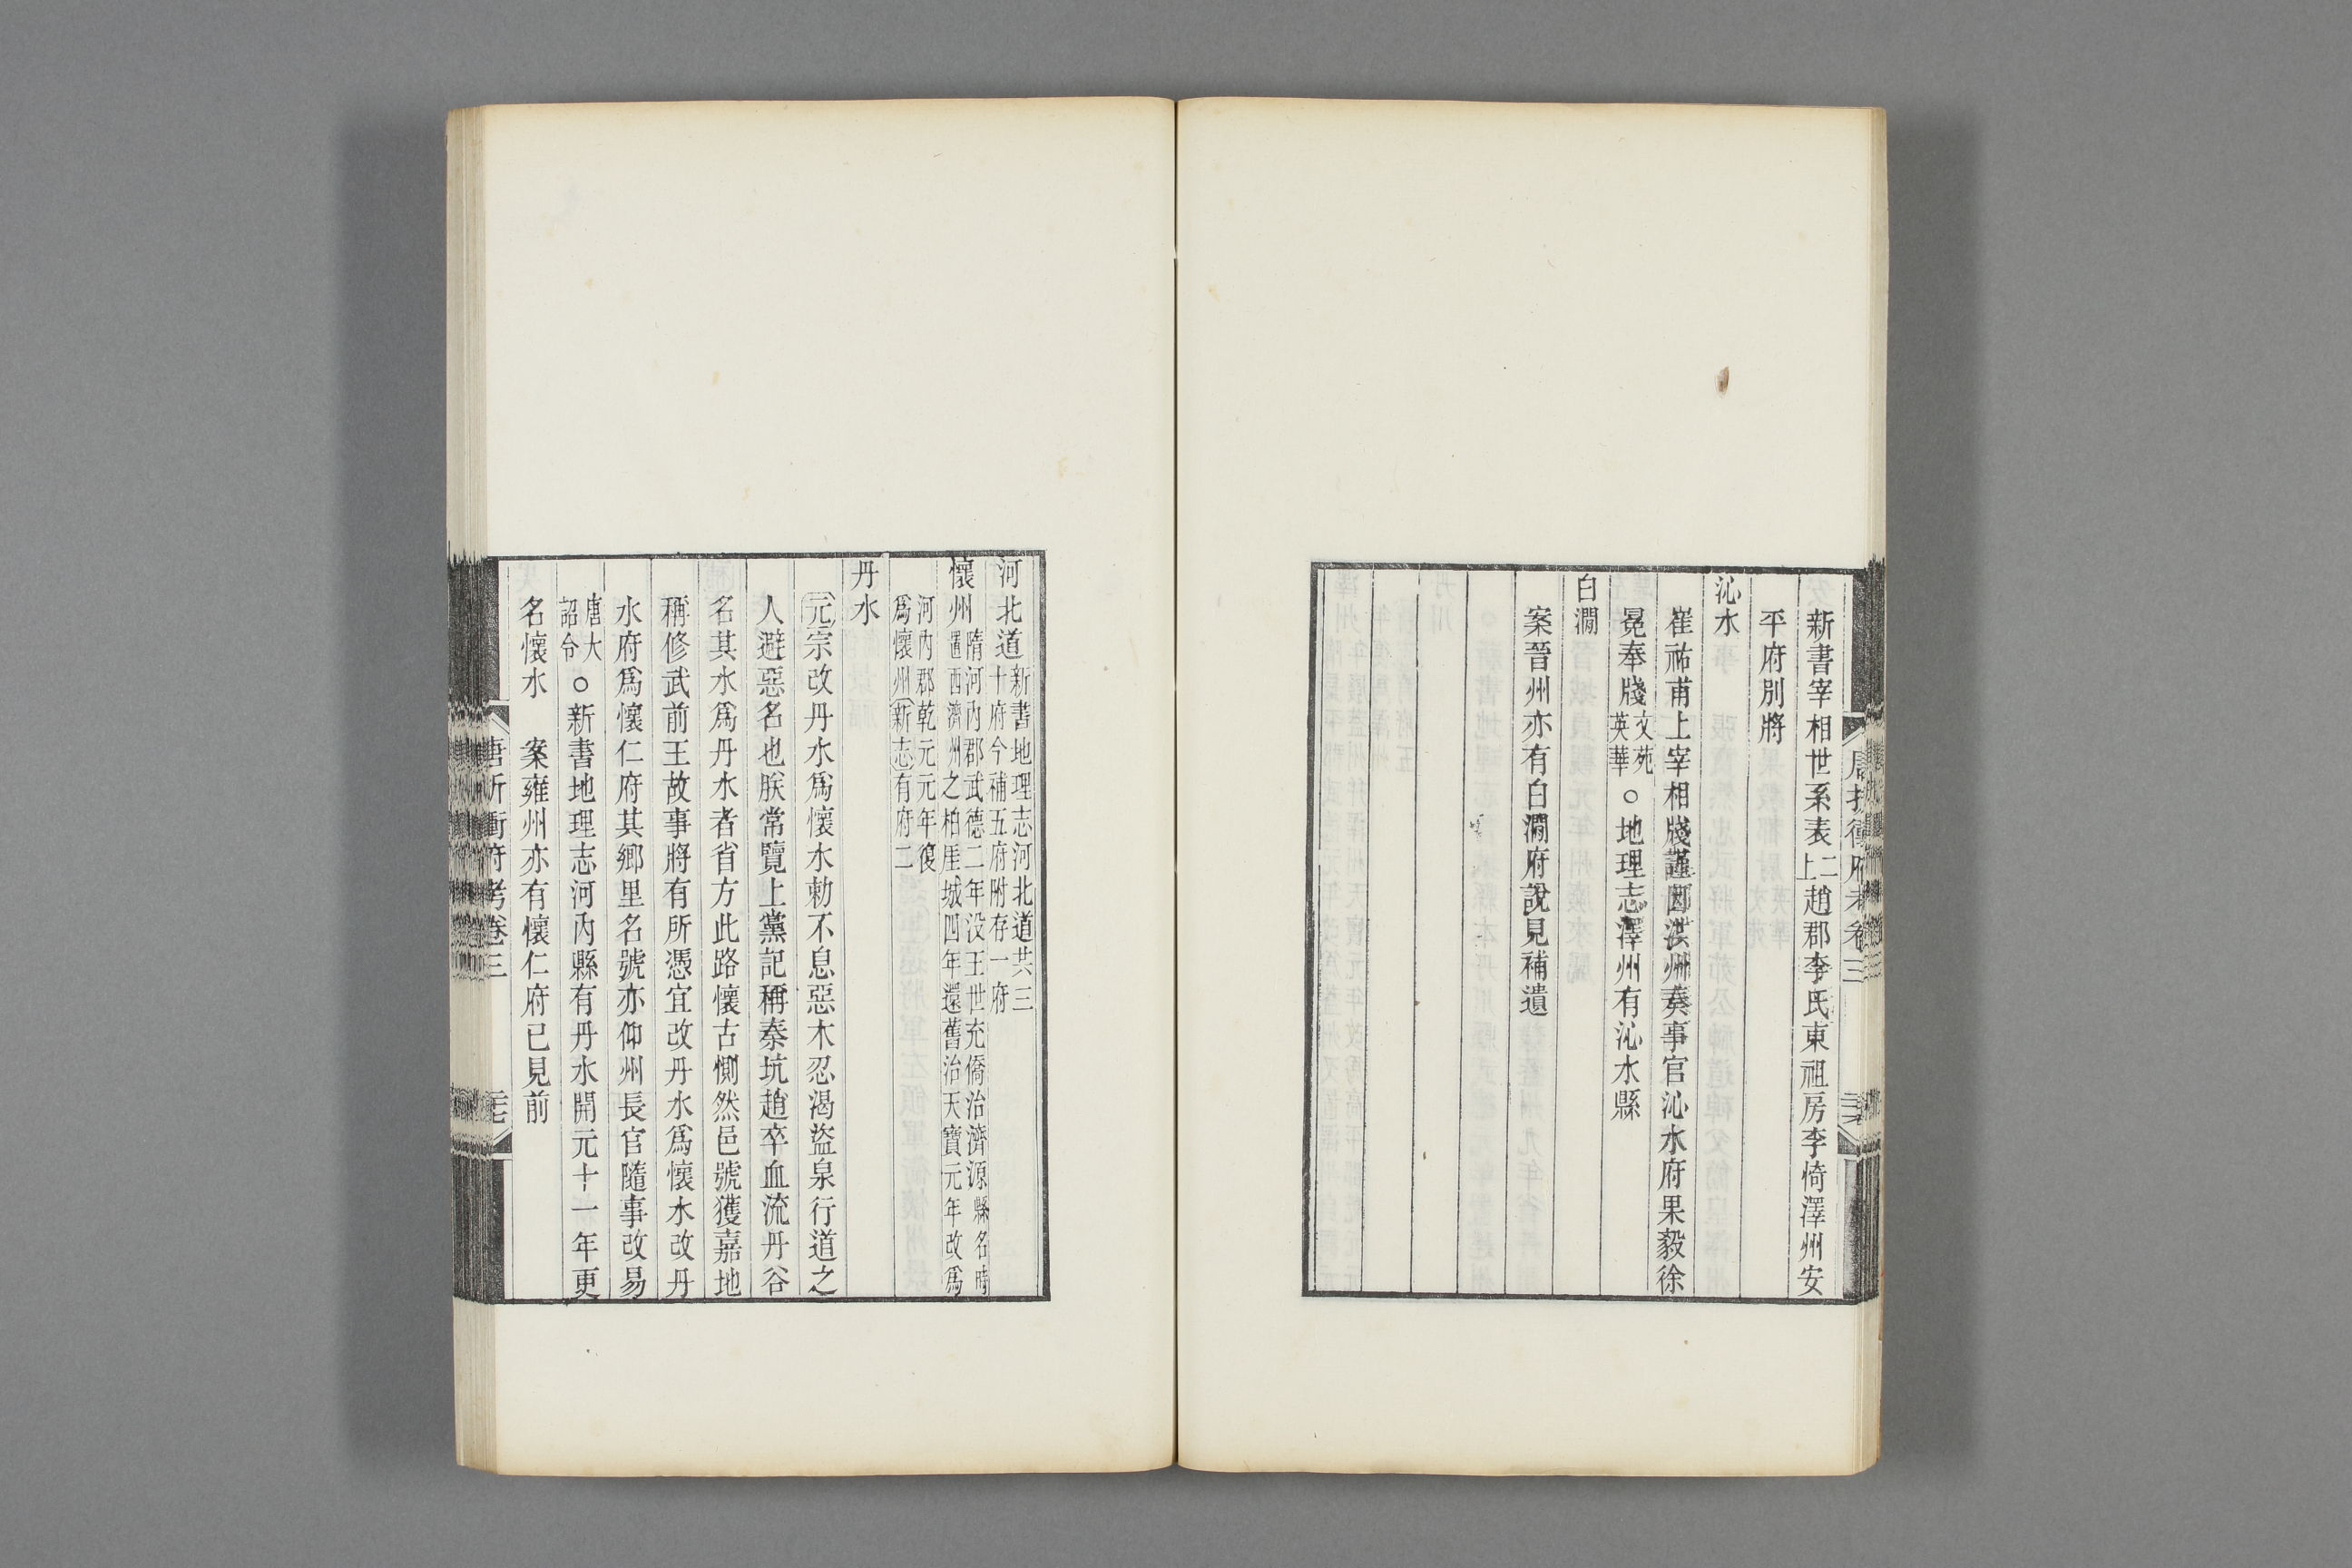 新書宰相世系表二上趙郡李氏東祖房李倚澤州安
平府別將
沁水
崔祐甫上宰相牋謹因洪州奏事官沁水府果毅徐
冕奉牋文苑英華○地理志澤州有沁水縣
白澗
案晉州亦有白澗府說見補遺
河北道新書地理志河北道共三十府今補五府附存一府
懷州隋河內郡武德二年没王世充僑治濟源縣名時置西濟州之柏崖城四年還舊治天寶元年改爲
河內郡乾元元年復爲懷州新志有府二
丹水
元宗改丹水爲懷水勅不息惡木忍渴盜泉行道之
人避惡名也朕常覽上黨記稱秦坑趙卒血流丹谷
名其水爲丹水者省方此路懷古惻然邑號獲嘉地
稱修武前王故事將有所憑宜改丹水爲懷水改丹
水府爲懷仁府其鄉里名號亦仰州長官隨事改易
唐大詔令○新書地理志河內縣有丹水開元十一年更
名懷水　案雍州亦有懷仁府已見前
唐折衝府考卷三